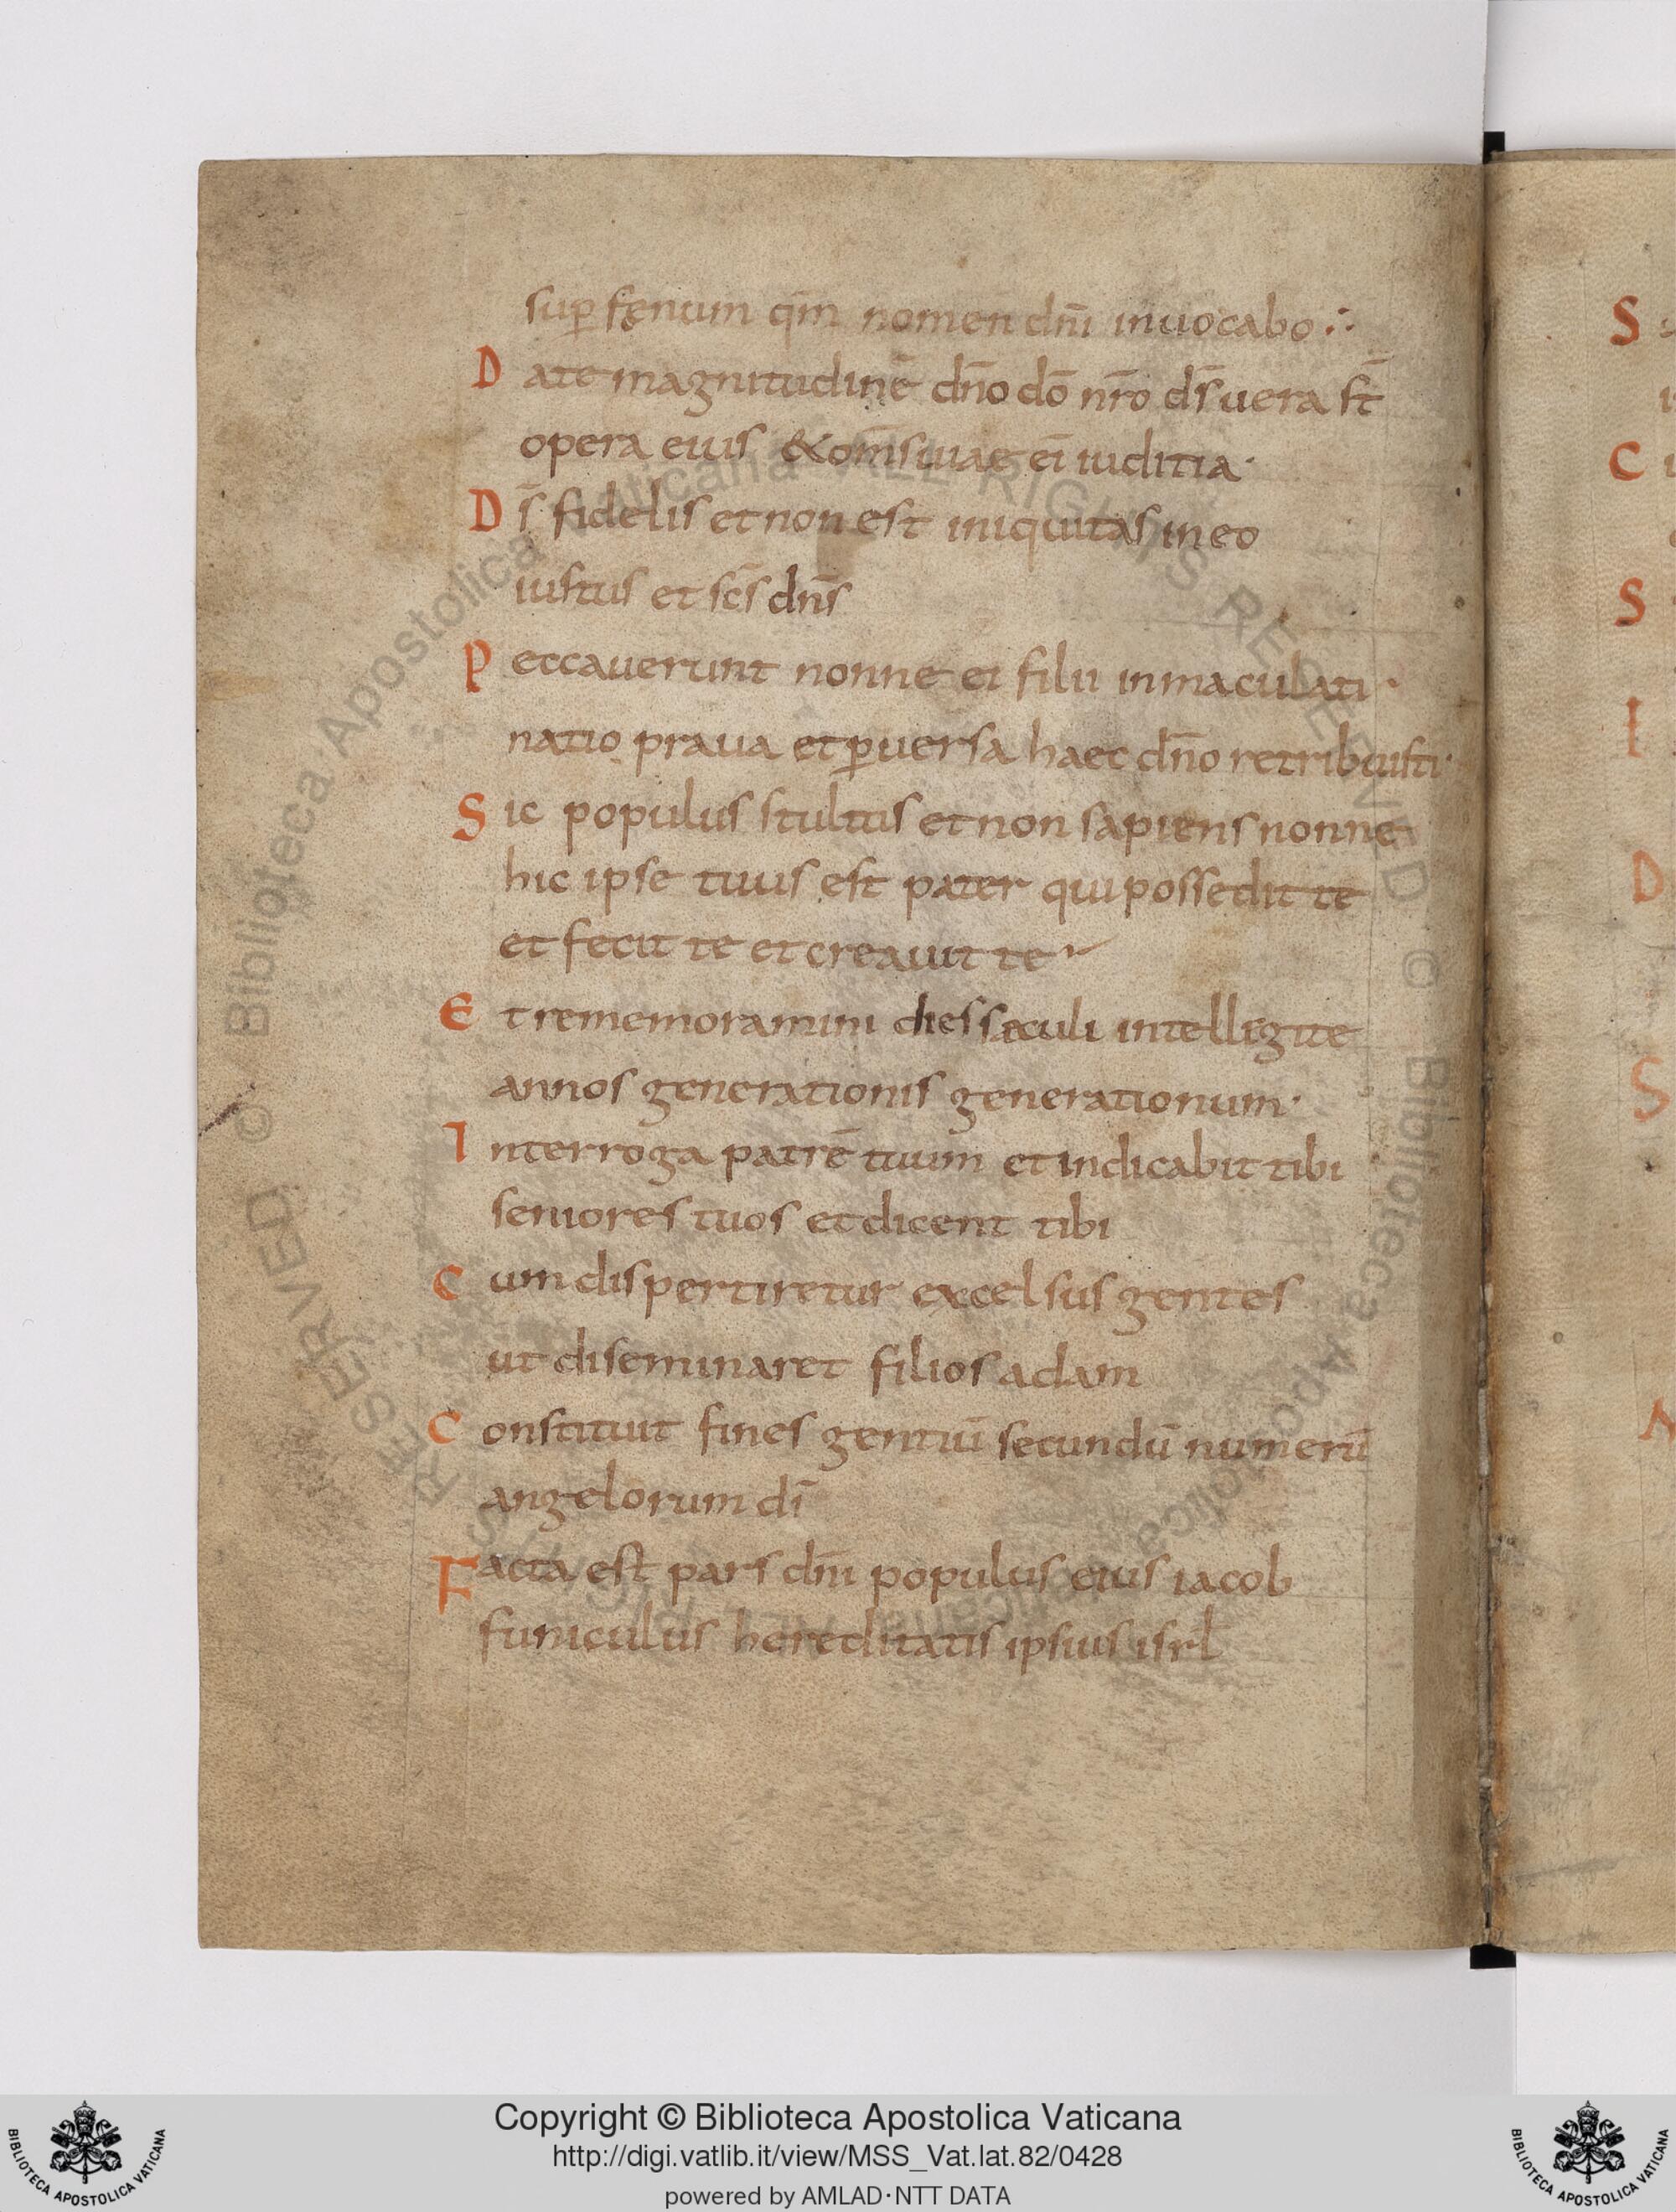 sup̄ fęnum qm̄ nomen dn̄i inuocabo ∴
Date magnitudinē dn̄o dō nr̄o dš uera st̄
opera eius & om̄s uiae eī iuditia·
Ds̄ fidelis et non est iniquitas in eo
iustus et scs̄ dn̄s
Peccauerunt non ne ei filii inmaculati·
natio praua et ꝑuersa haec dn̄o retribuisti·
Sic populus stultus et non sapiens nonne
hic ipse tuus est pater qui possedit te
et fecit te et creauit te
Et rememoramini dies saeculi intelligite
annos generationis generationum·
Interroga patrē tuum et indicabit tibi
seniores tuos et dicent tibi
Cum dispertiretur excelsus gentes
ut diseminaret filios adam
Constituit fines gentiū secundū numerū
angelorum dī
Facta est pars dn̄i populus eius iacob
funiculus hereditatis ipsius isrl̄
S
C
S
I
D
S
N
© Biblioteca Apostolica Vaticana ALL RIGHTS RESERVED © Biblioteca Apostolica Vaticana ALL RIGHTS RESERVED
Copyright © Biblioteca Apostolica Vaticana
http://digi.vatlib.it/view/MSS_Vat.lat.82/0428
powered by AMLAD·NTT DATA
BIBLIOTECA APOSTOLICA VATICANA
BIBLIOTECA APOSTOLICA VATICANA